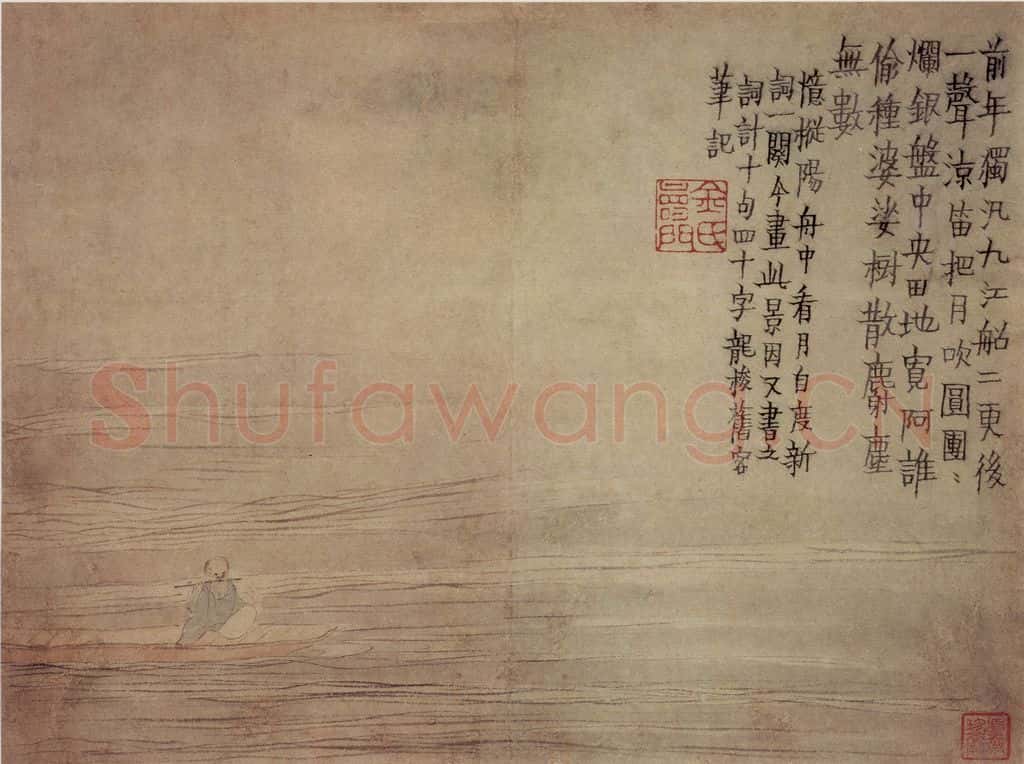 前年獨汎九江船二更後
一聲涼笛把月吹圓團〻
爛銀盤中央田地寬阿誰
偷種婆娑樹散麝塵
無數
憶樅陽舟中看月自度新
詞一闋今畫此景因又書之
詞計十句四十字龍梭舊客
筆記
金氏壽門
Shufawang.CN